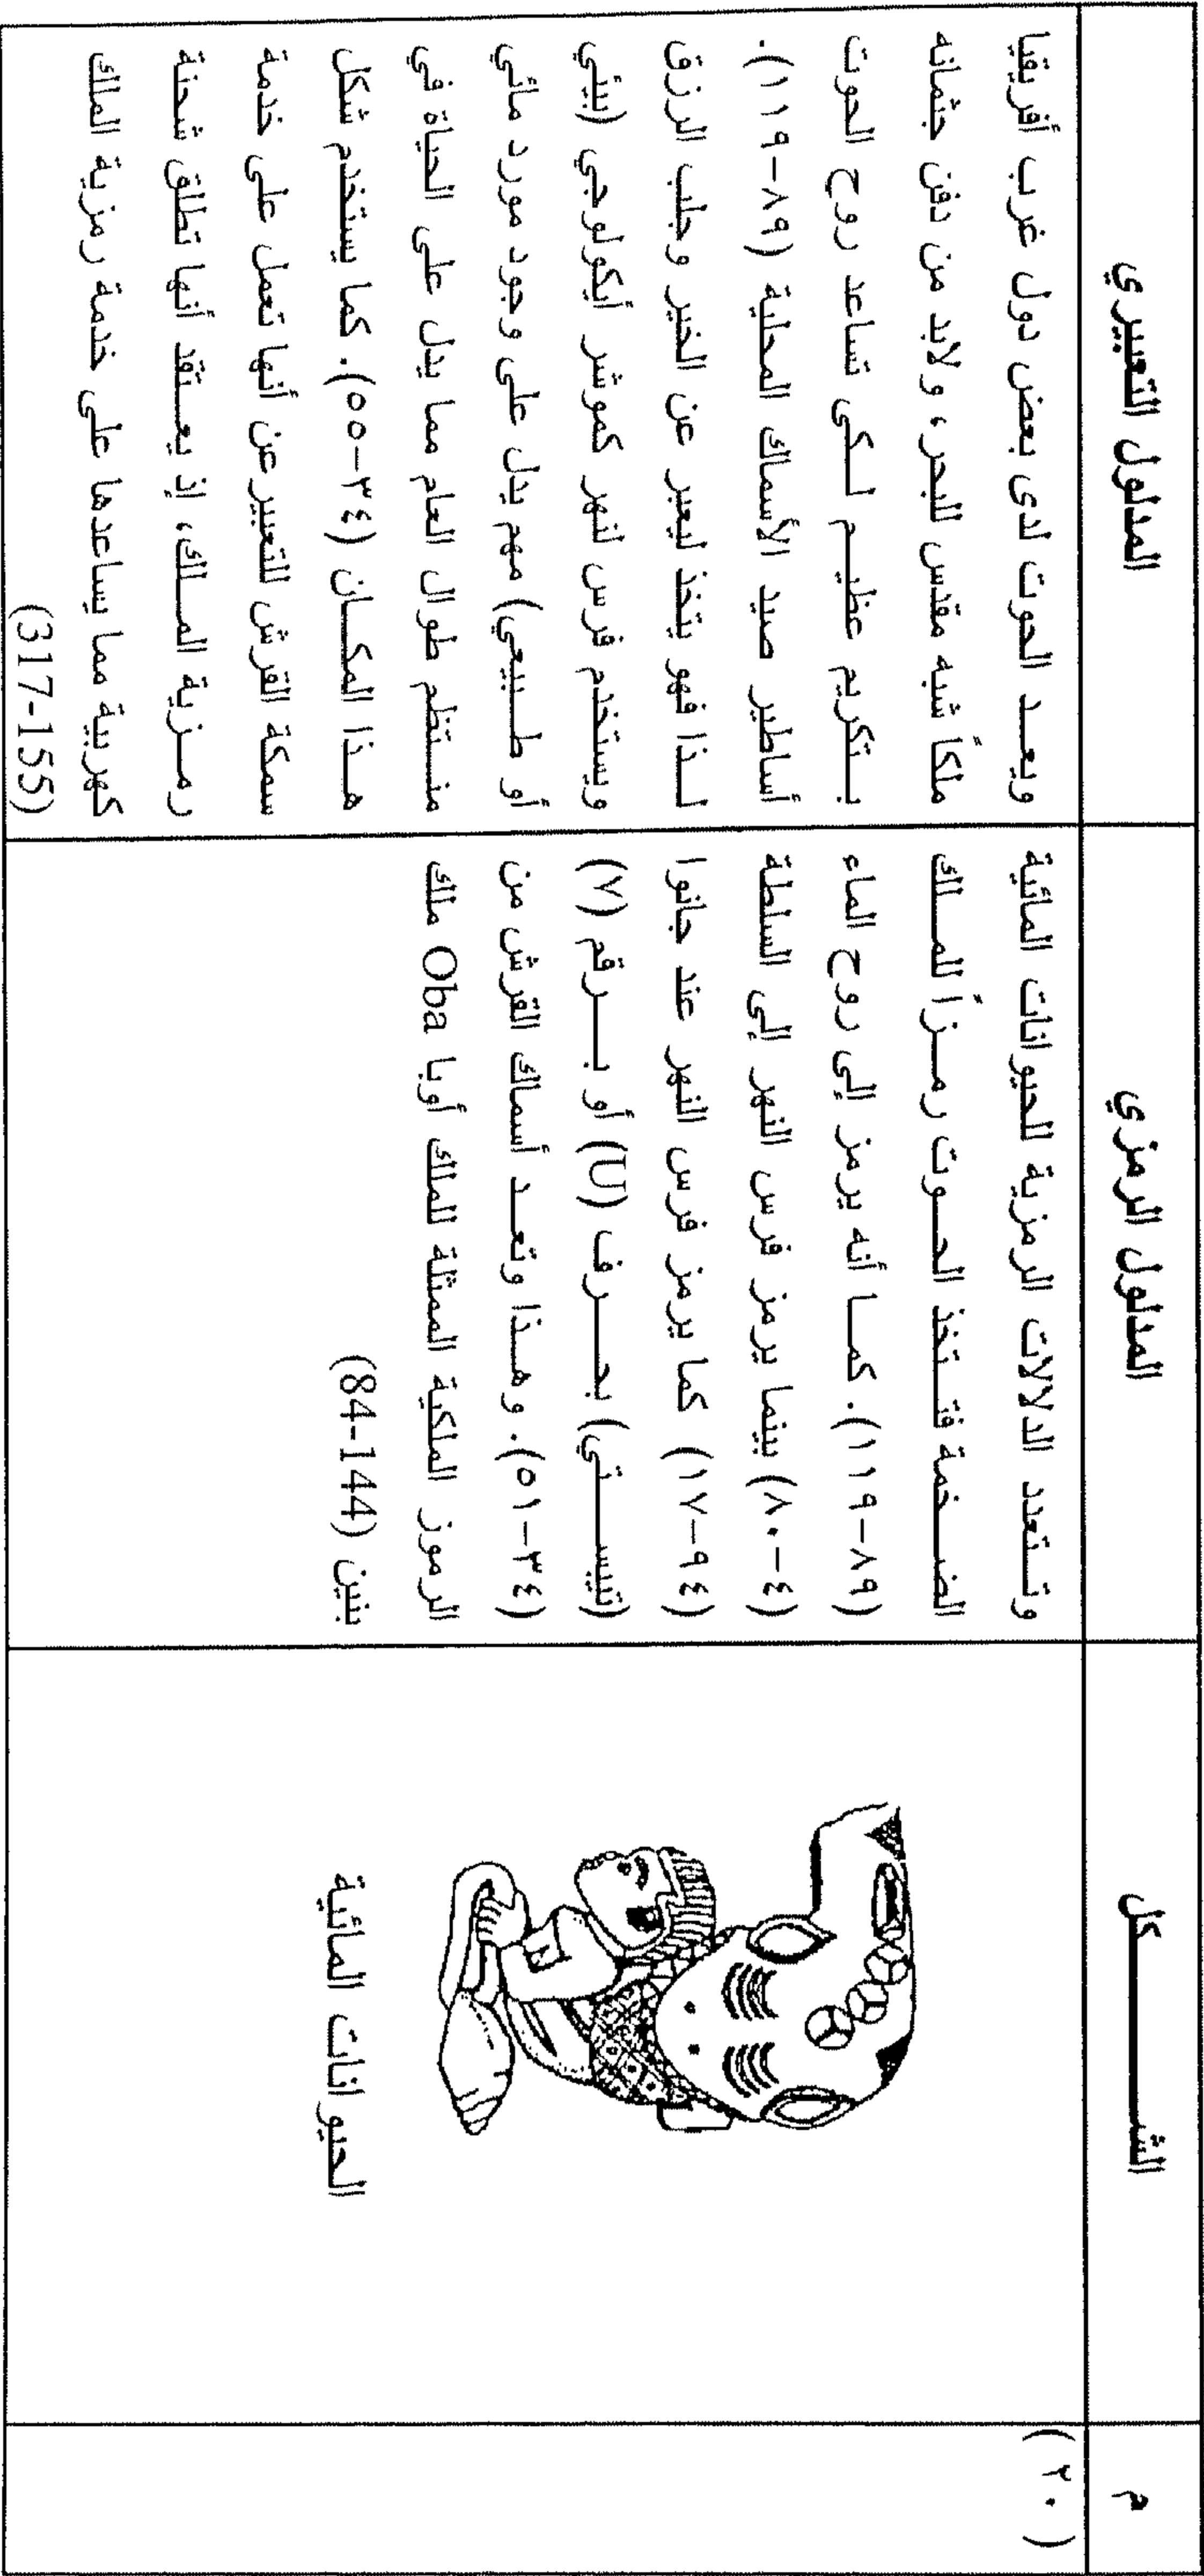 م
الشكل
المدلول الرمزي
المدلول التعبيري
(٢٠)
الحيوانات المائية
وتتعدد الدلالات الرمزية للحيوانات المائية
الضخمة فتتخذ الحوت رمزاً للملك
كما أنه يرمز إلى روح الماء
(٨٩-١١٩). بينما يرمز فرس النهر إلى السلطة
(٤-٨٠) كما يرمز فرس النهر عند جانوا
(٩٤-١٧) بحرف (U) أو برقم (٧)
(تييستي) وهذا وتعد أسماك القرش من
(٣٤-٥١). الرموز الملكية الممثلة للملك أوبا Oba ملك
بنين (84-144)
ويعد الحوت لدى بعض دول غرب أفريقيا
ملكاً شبه مقدس للبحر، ولابد من دفن جثمانه
بتكريم عظيم لكى تساعد روح الحوت
أساطير صيد الأسماك المحلية (٨٩-١١٩).
لذا فهو يتخذ ليعبر عن الخير وجلب الرزق
ويستخدم فرس النهر كموشر أيكولوجي (بيئي
أو طبيعي) مهم يدل على وجود مورد مائي
منتظم طوال العام مما يدل على الحياة في
هذا المكان (٣٤-٥٥). كما يستخدم شكل
سمكة القرش للتعبير عن أنها تعمل على خدمة
رمزية الملك، إذ يعتقد أنها تطلق شحنة
كهربية مما يساعدها على خدمة رمزية الملك
(317-155)